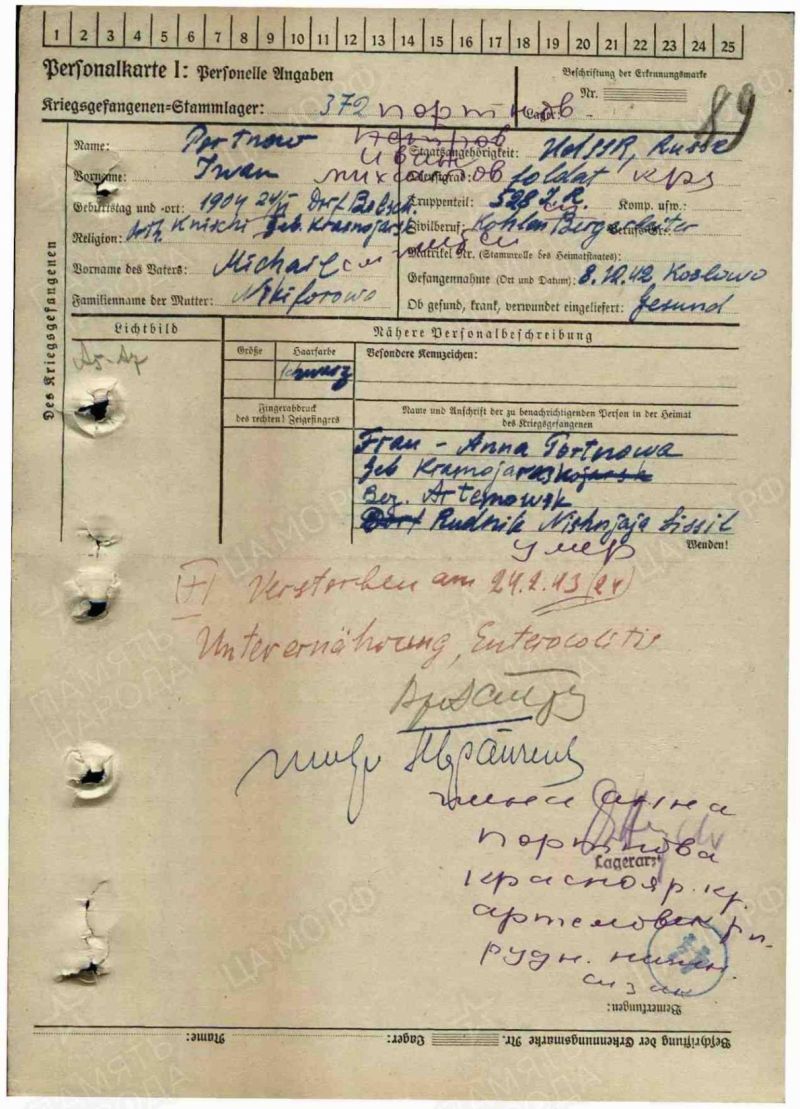 1 2 3 4 5 6 7 8 9 10 11 12 13 14 15 16 17 18 19 20 21 22 23 24 25
Personalkarte I: Personelle Angaben
Beschriftung der Erkennungsmarke
Nr.
89
Kriegsgefangenen-Stammlager: 372
Портнов
Lager:
Des Kriegsgefangenen
Name: Portnow
Петров
Staatsangehörigkeit: UdSSR, Russe
Vorname: Iwan
Иван
Михайлов
Dienstgrad: Soldat
кра
Geburtstag und -ort: 1904 24/
Dorf
Truppenteil: 528 I.R. Komp. usw.:
Religion: Orth.
Geb. Krasnojarsk
Zivilberuf: Kohlen Bergarbeiter
Berufs-Gr.:
Matrikel Nr. (Stammrolle des Heimatstaates):
Vorname des Vaters: Michail
Gefangennahme (Ort und Datum): 8.12.42 Koslowo
Familienname der Mutter: Nikiforowo
Ob gesund, krank, verwundet eingeliefert: gesund
Lichtbild
Nähere Personalbeschreibung
Größe
Haarfarbe
Besondere Kennzeichen:
schwarz
Fingerabdruck
des rechten! Zeigefingers
Name und Anschrift der zu benachrichtigenden Person in der Heimat
des Kriegsgefangenen
Frau - Anna Portnowa
Geb
Bez. Artemowsk
Dorf Rudnik Nishnjaja Sissil
Wenden!
умер
(+) Verstorben am 24.2.43 (24)
Unterernährung, Enterocolitis
жена Анна
Портнова
Lagerarzt
Краснояр. кр.
Артемовск
рудн. нижн.
Bemerkungen:
Beschriftung der Erkennungsmarke Nr.
Lager:
Name:
ПАМЯТЬ
НАРОДА
ЦАМО.РФ